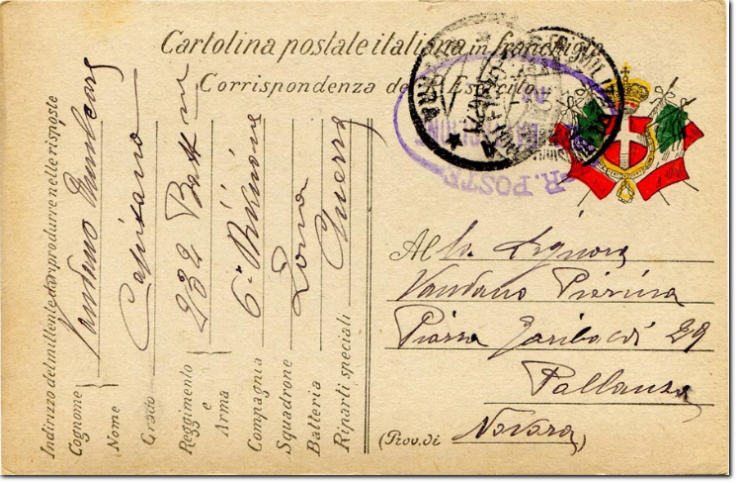 Cartolina postale italiana in franchigia
Corrispondenza del R. Esercito
R. POSTE
Al la Signora
Vandano Pierina
Piazza Garibaldi 29
Pallanza
(Prov. di Novara)
Indirizzo del mittente da riprodurre nelle risposte
Cognome Vandano
Nome
Grado Capitano
Reggimento e Arma 232 Batt
Compagnia 6a
Squadrone Zona
Batteria
Riparti speciali Guerra